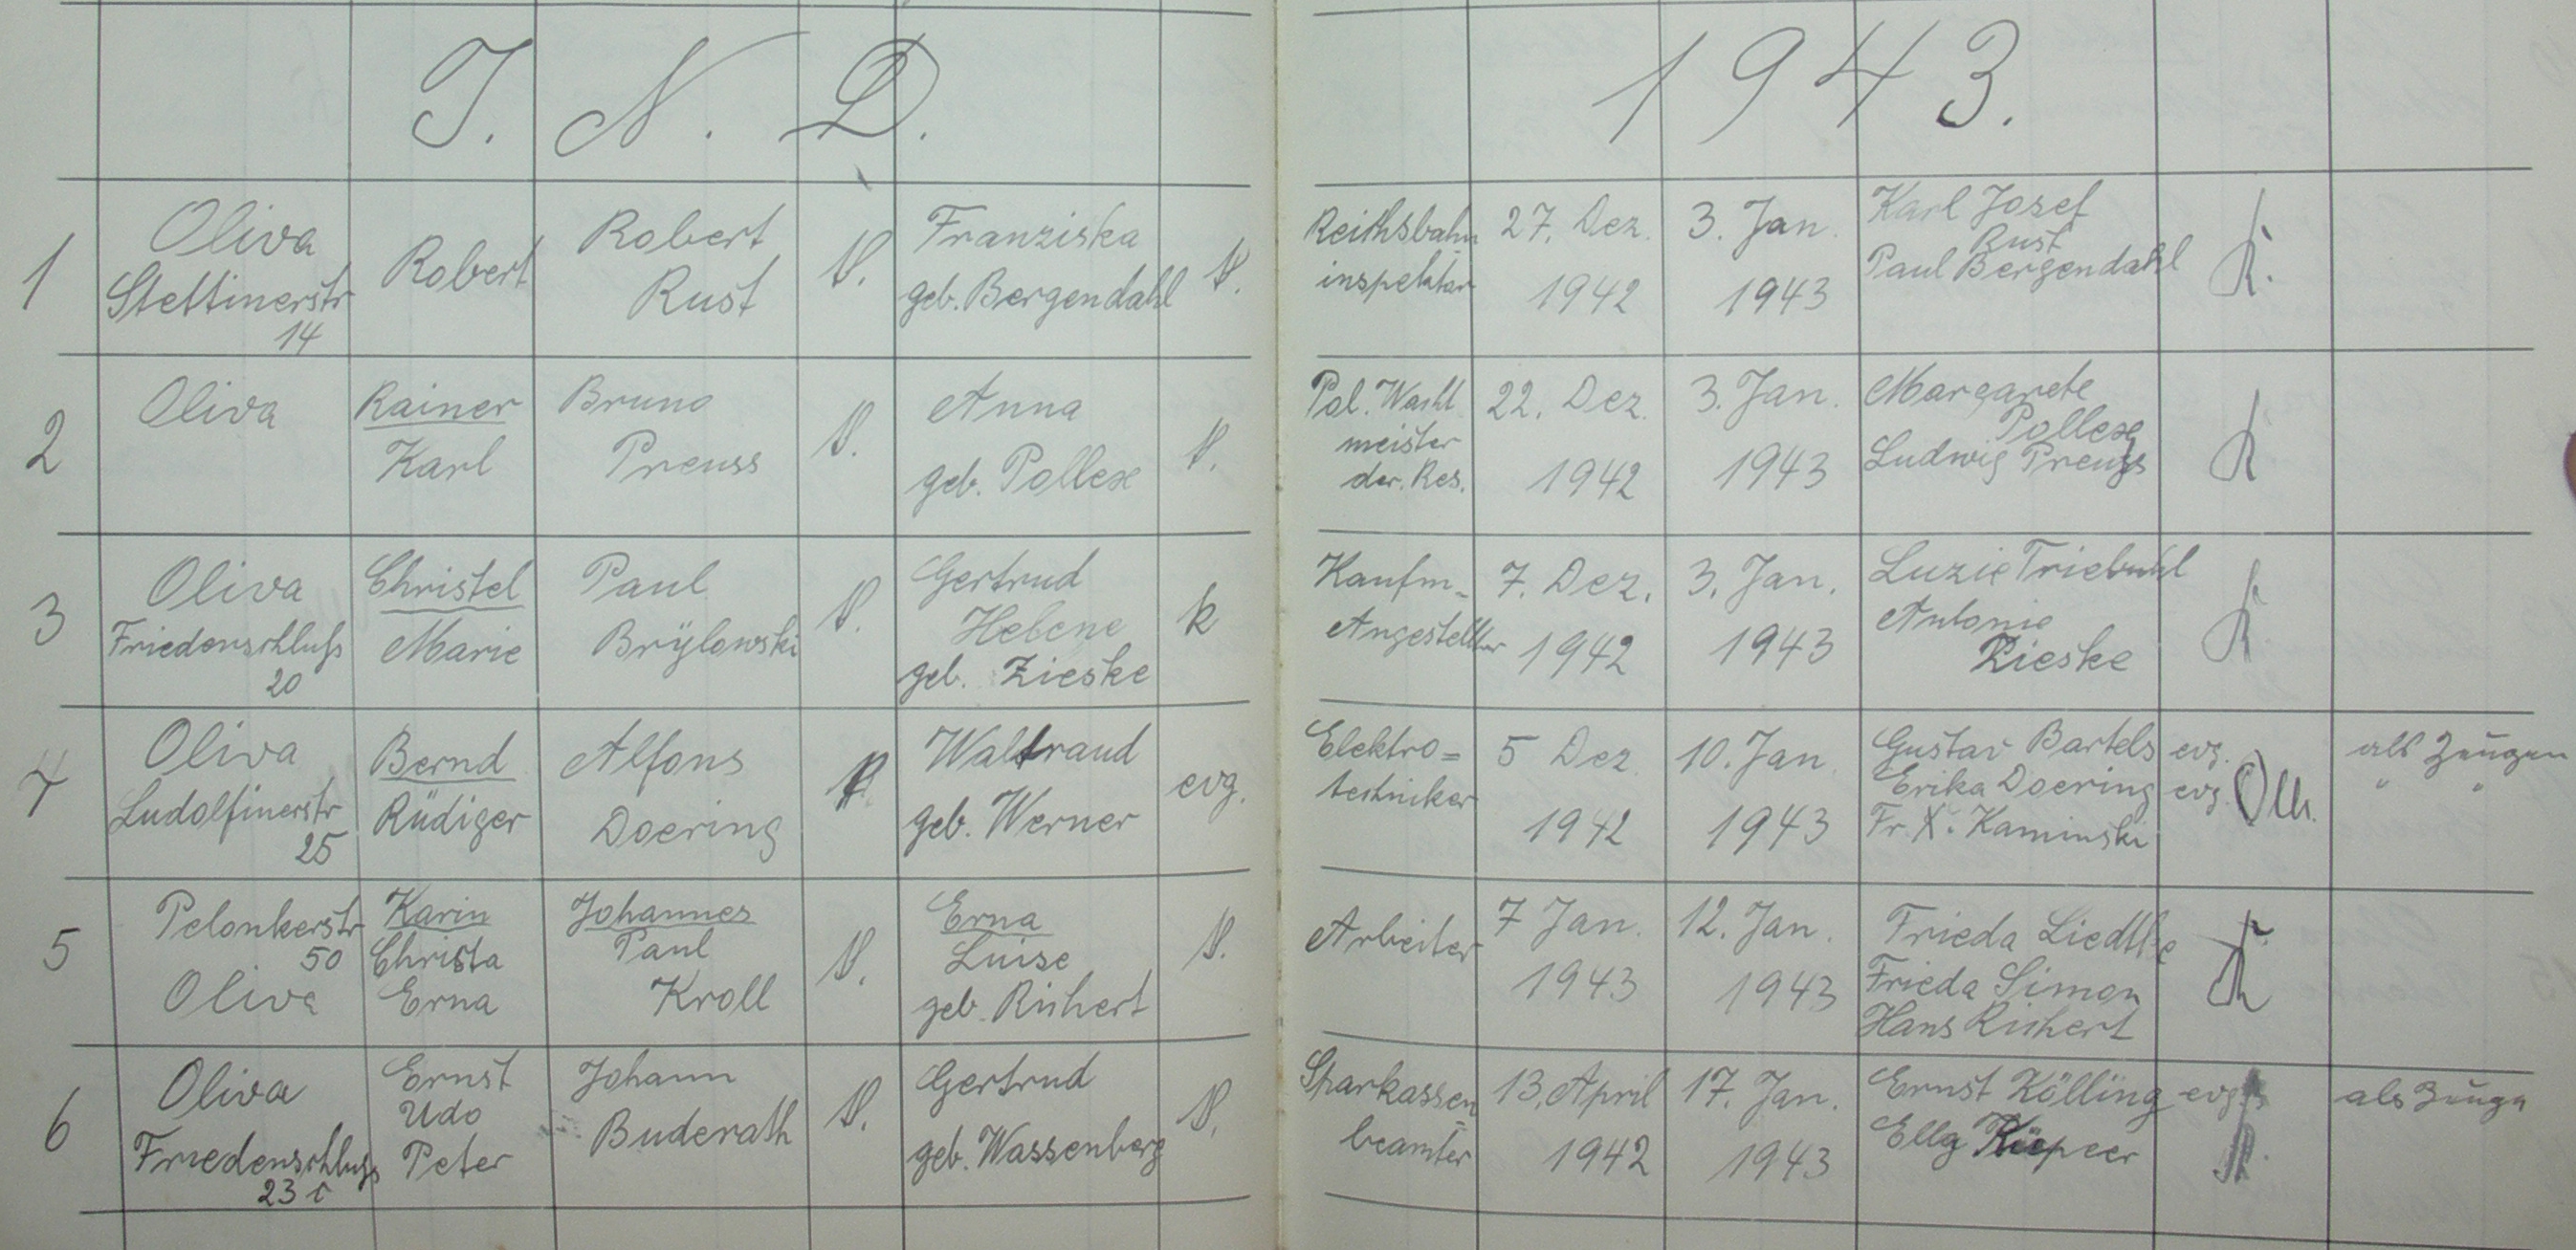 I. N. D. 1943.
1
Oliva
Stettinerstr
14
Robert
Robert
Rust
Franziska
geb. Bergendahl
Reichsbahn
inspektor
27. Dez.
1942
3. Jan.
1943
Karl Josef
Rust
Paul Bergendahl
K.
2
Oliva
Rainer
Karl
Bruno
Preuss
Anna
geb. Pollex
Pol. Wacht
meister
der. Res.
22. Dez.
1942
3. Jan.
1943
Margarete
Pollex
Ludwig Preuss
K
3
Oliva
Friedenschluß
20
Christel
Marie
Paul
Brÿlowski
Gertrud
Helene
geb. Zieske
k
Kaufm-
Angestellter
7. Dez.
1942
3. Jan.
1943
Luzie Triebuhl
Antonie
Zieske
K.
4
Oliva
Ludolfinerstr
25
Bernd
Rüdiger
Alfons
Doering
Waltraud
geb. Werner
evg.
Elektro=
techniker
5 Dez.
1942
10. Jan.
1943
Gustav Bartels evg.
Erika Doering evg.
Fr. X. Kaminski
als Zeugen
" "
5
Pelonkerstr
50
Oliva
Karin
Christa
Erna
Johannes
Paul
Kroll
Erna
Luise
geb. Richert
Arbeiter
7 Jan.
1943
12. Jan.
1943
Frieda Liedtke
Frieda Simon
Hans Richert
6
Oliva
Friedenschluß
23 c
Ernst
Udo
Peter
Johann
Buderath
Gertrud
geb. Wassenberg
Sparkassen
beamter
13. April
1942
17. Jan.
1943
Ernst Kölling evg
als Zeuge